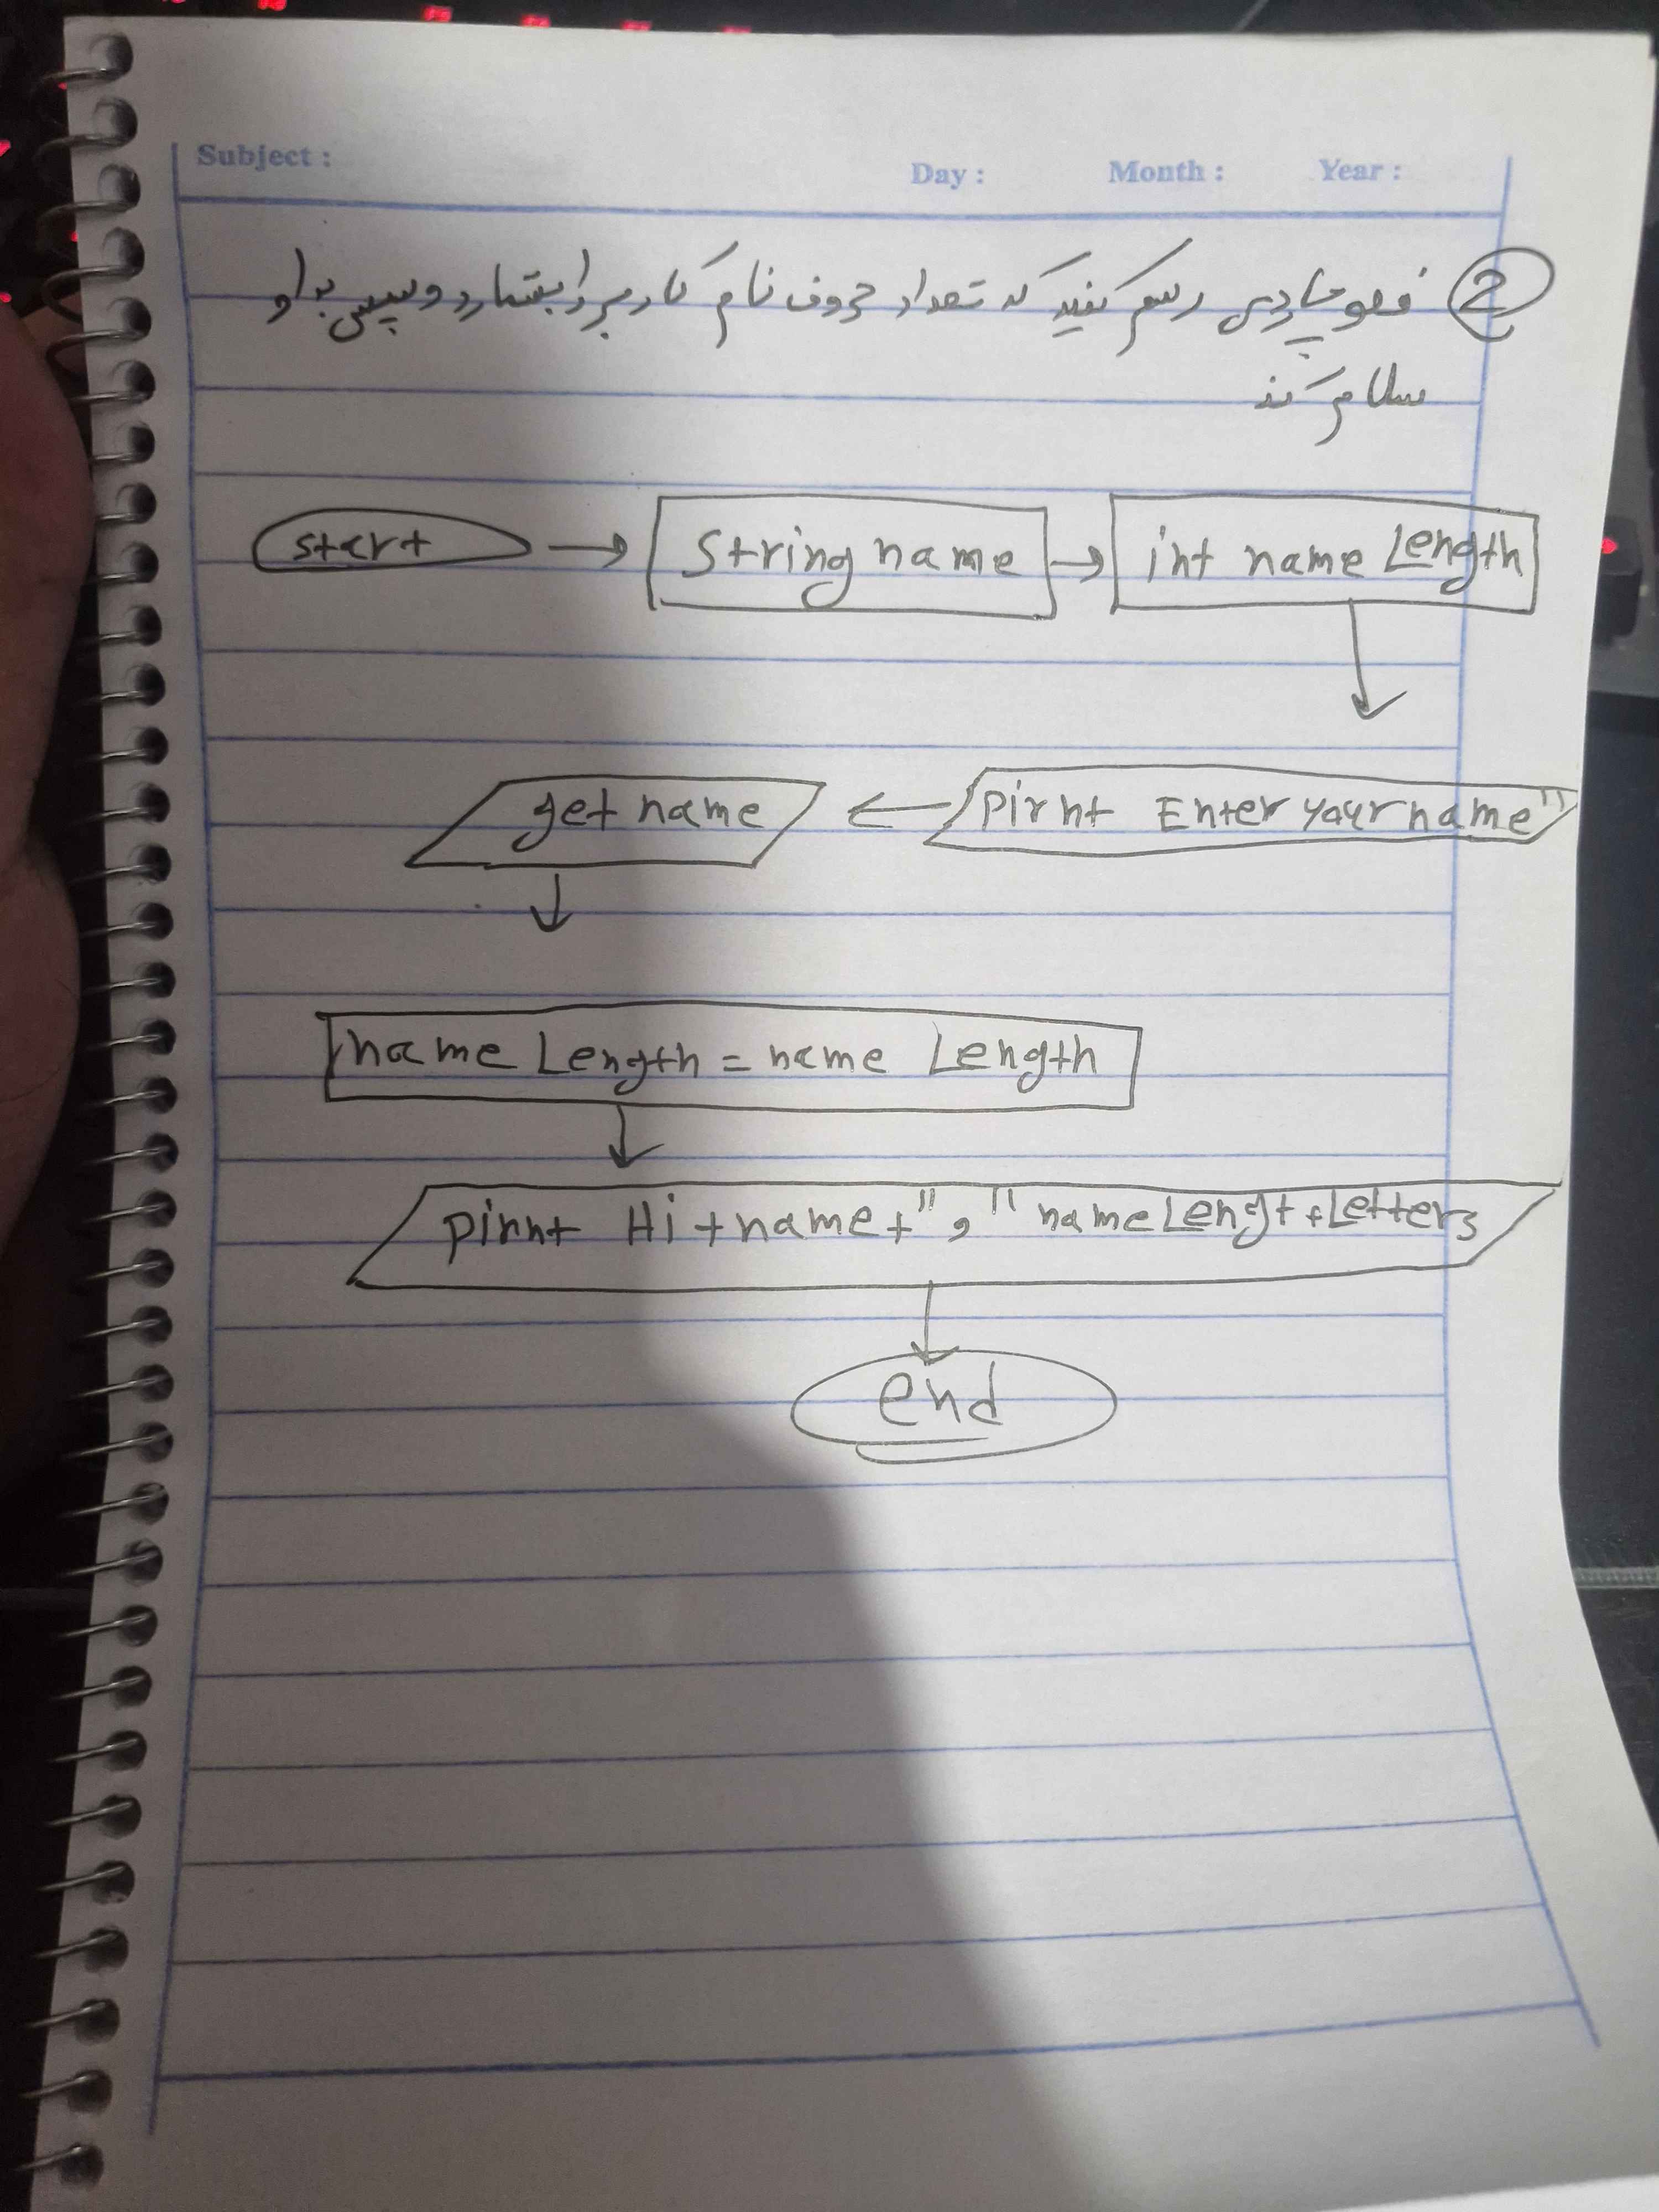 Subject :
Day : Month : Year :
2 فلوچارتی رسم کنید که تعداد حروف نام کاربر را بشمارد و سپس به او
سلام کند
start
String name
int name Length
pirnt Enter your name"
get name
name Length = name Length
pirnt Hi + name + " , " nameLengt + Letters
end